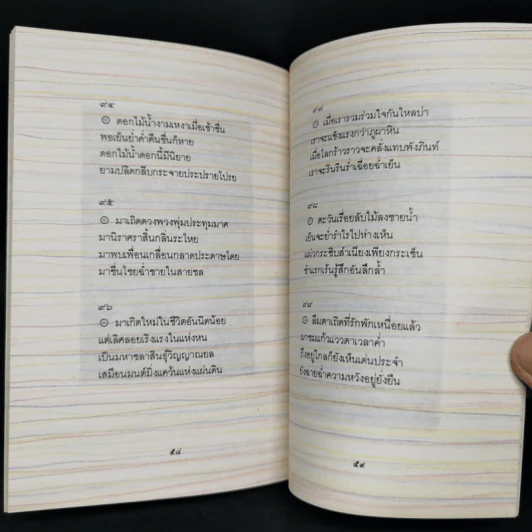 ๙๔
๏ ดอกไม้น้ำงามเหงาเมื่อเช้าชื่น
พอเย็นย่ำค่ำคืนชื่นก็หาย
ดอกไม้น้ำดอกนี้มีนิยาย
ยามปลิดกลีบกระจายประปรายโปรย
๙๕
๏ มาเถิดดวงพวงพุ่มประทุมมาศ
มานิราศราสิ้นกลิ่นระไหย
มาพบเพื่อนเกลื่อนกลาดประดาษโดย
มาชื่นโชยฉ่ำชายในสายชล
๙๖
๏ มาเกิดใหม่ในชีวิตอันนิดน้อย
แต่เลิศลอยเริงแรงในแห่งหน
เป็นมหาชลาสินธุ์วิญญาณยล
เสมือนมนต์มิ่งแคว้นแห่งแผ่นดิน
๕๘
๙๗
๏ เมื่อเรารวมร่วมใจกันไหลบ่า
เราจะแข็งแรงกว่าภูผาหิน
เมื่อโลกร้าวราวจะคลั่งแทบพังภินท์
เราจะรินรินร่ำเฉื่อยฉ่ำเย็น
๙๘
๏ ตะวันเรื่อยลับไม้ลงชายน้ำ
เย็นจะย่ำรำไรไปห่างเห็น
แผ่วกระซิบสำเนียงเพียงกระเซ็น
ช้าแรกเร้นรู้สึกอันลึกล้ำ
๙๙
๏ ลืมตาเถิดที่รักพักเหนื่อยแล้ว
มาชมแก้วแววตาเวลาค่ำ
ถึงอยู่ไกลก็ยังเห็นเด่นประจำ
ยังฉายฉ่ำความหวังอยู่ยั่งยืน
๕๙